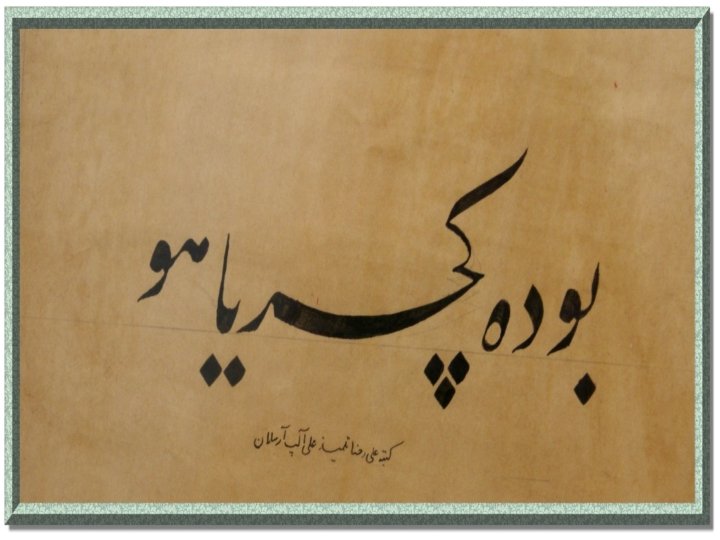 بو ده کچر یا هو
کتبه علی رضا تلمیذ علی آلپ آرسلان